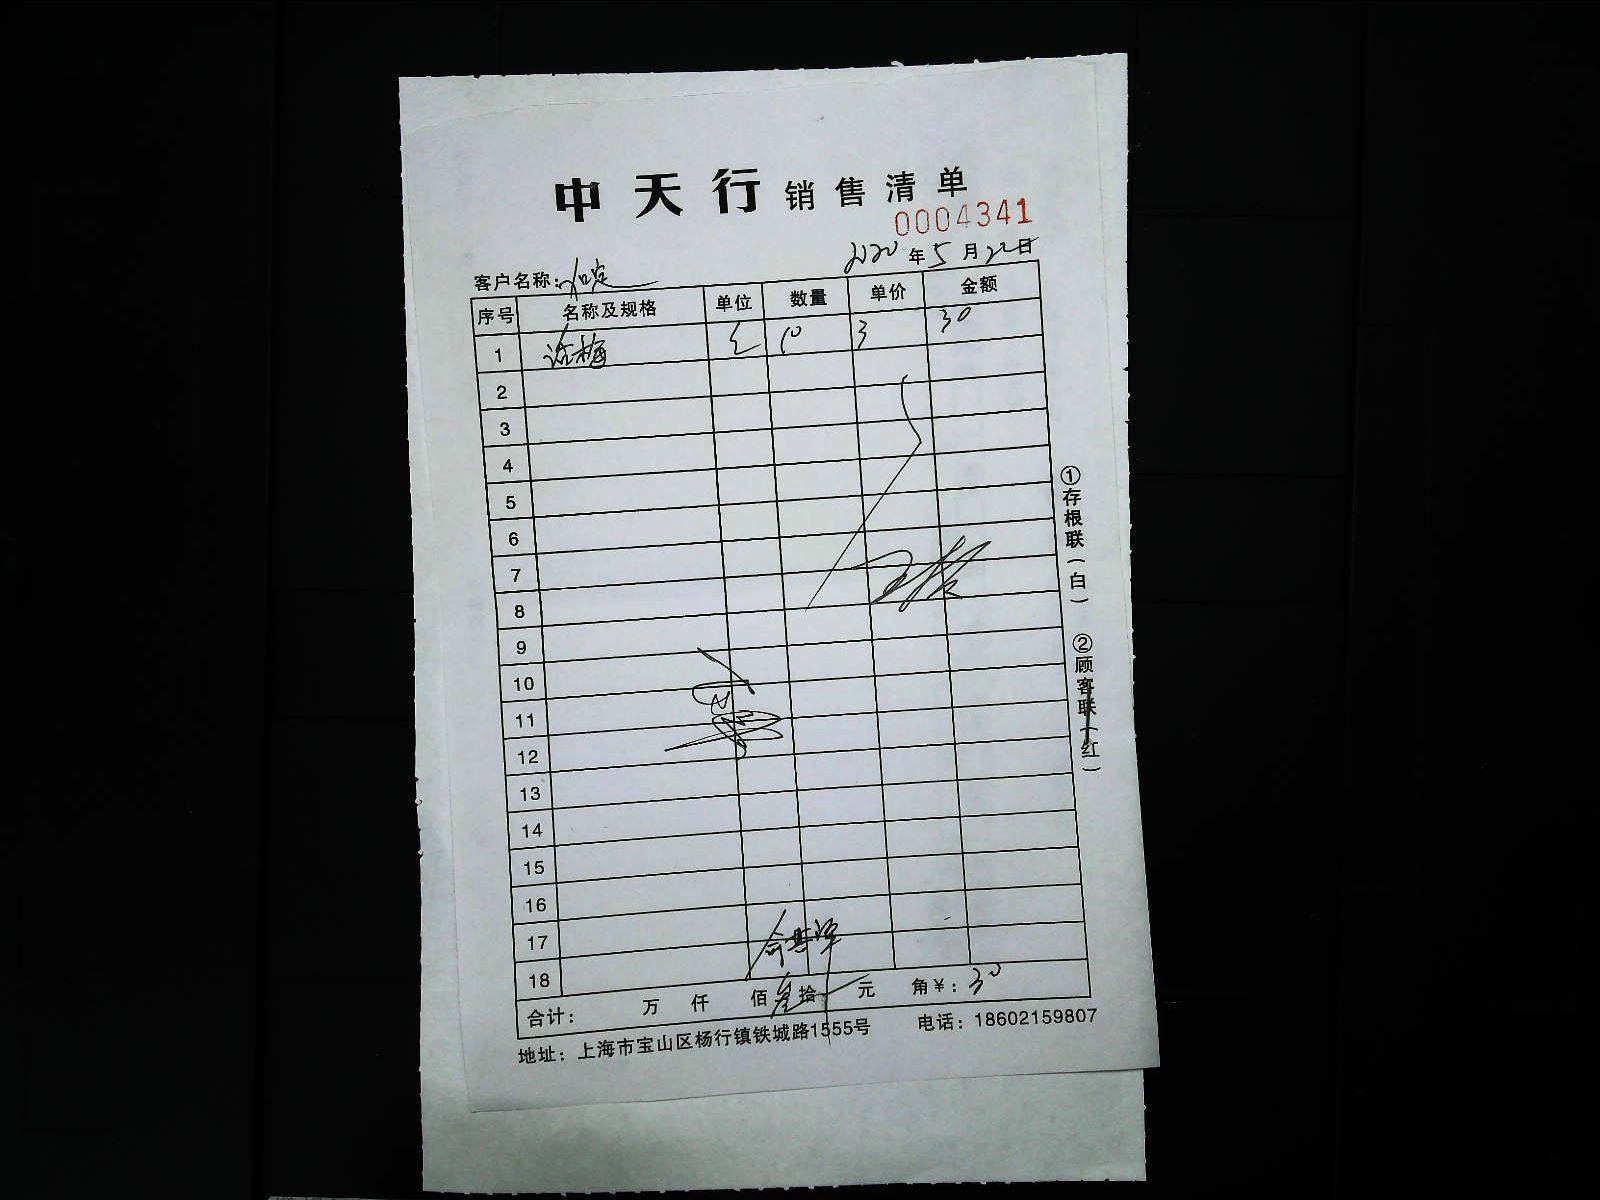 中天行 销售清单
0004341
2020年5月22日
客户名称:
序号 名称及规格 单位 数量 单价 金额
1 话梅 10 3 30
2
3
4
5
6
7
8
9
10
11
12
13
14
15
16
17
18
合计: 万 仟 佰 叁拾 元 角¥: 30
地址: 上海市宝山区杨行镇铁城路1555号 电话: 18602159807
①存根联(白) ②顾客联(红)